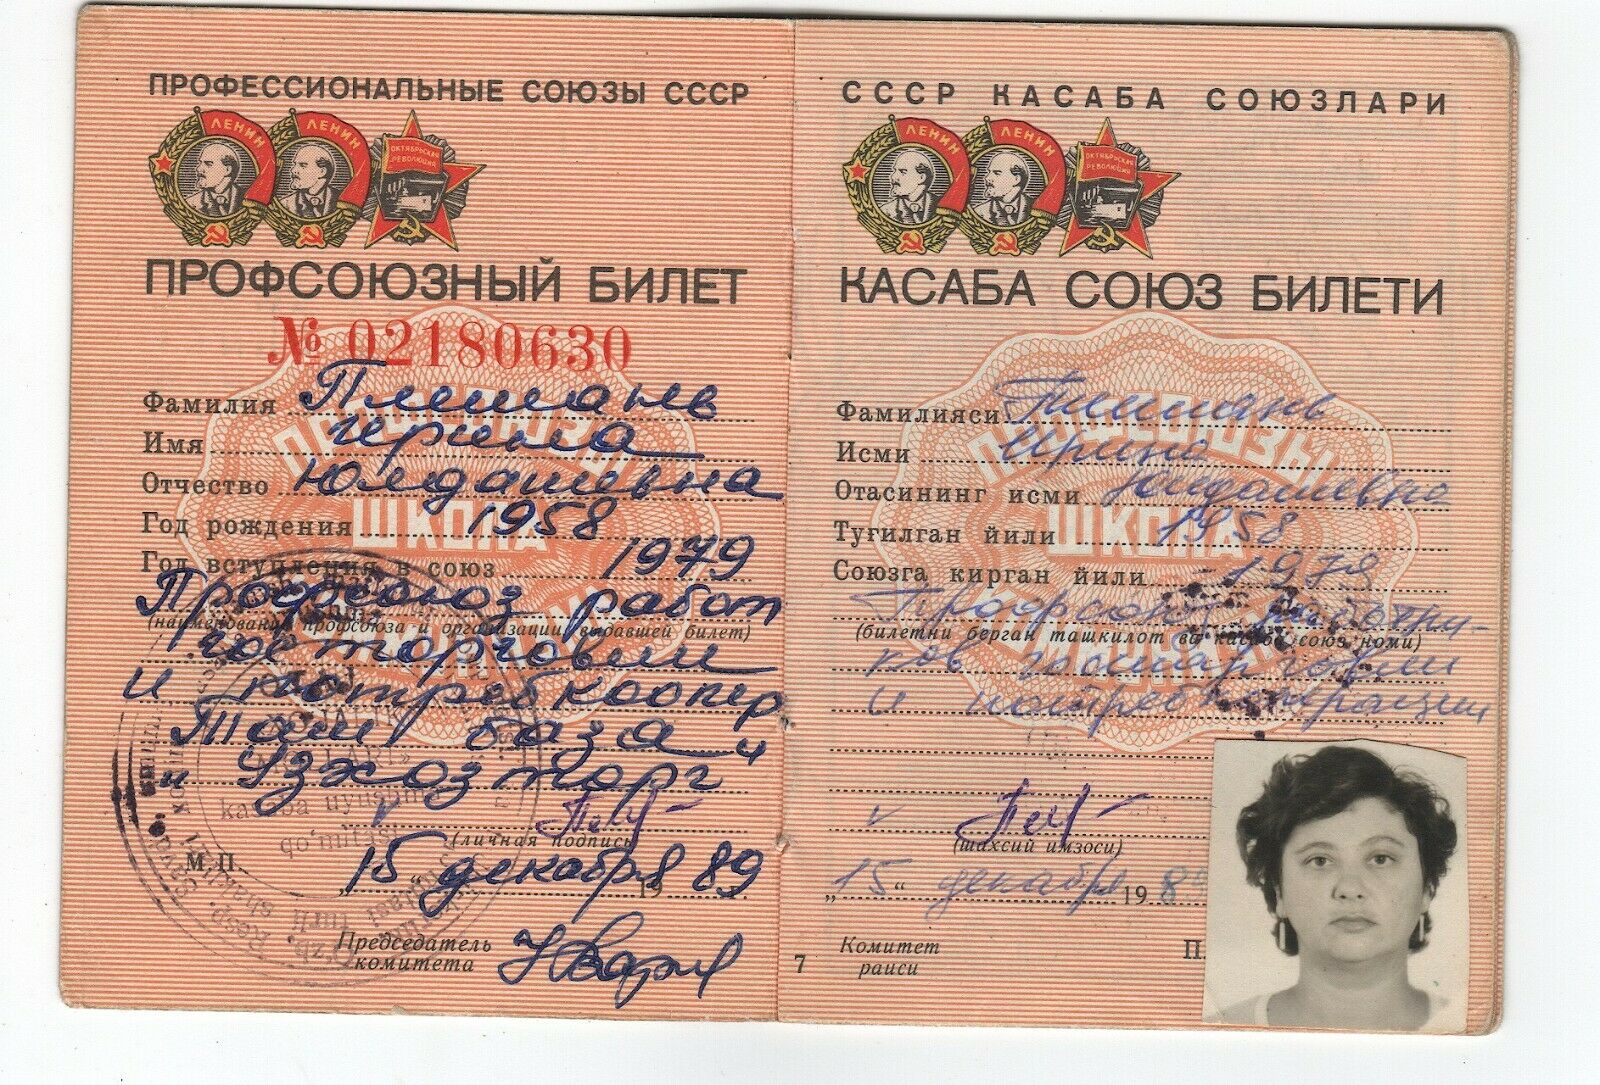 ПРОФЕССИОНАЛЬНЫЕ СОЮЗЫ СССР
ЛЕНИН ЛЕНИН ОКТЯБРЬСКАЯ РЕВОЛЮЦИЯ
ПРОФСОЮЗНЫЙ БИЛЕТ
№ 02180630
Фамилия
Имя Ирина
Отчество Юлдашевна
Год рождения 1958
Год вступления в союз 1979
Профсоюз работ
(наименование профсоюза и организации выдавшей билет)
госторговли
и потребкоопер
Таш база
и Узхозторг
(личная подпись)
М.П.
„15“ декабря 1989
Председатель
комитета
ПРОФСОЮЗЫ
ШКОЛА
КОММУНИЗМА
kasaba uyushma
qo‘mitasi
СССР КАСАБА СОЮЗЛАРИ
ЛЕНИН ЛЕНИН ОКТЯБРЬСКАЯ РЕВОЛЮЦИЯ
КАСАБА СОЮЗ БИЛЕТИ
Фамилияси
Исми Ирина
Отасининг исми Юлдашевна
Туғилган йили 1958
Союзга кирган йили 1979
Профсоюз работни-
(билетни берган ташкилот ва касаба союз номи)
ков госторговли
и потребкооперации
(шахсий имзоси)
„15“ декабря 1989
Комитет
раиси
7
ПРОФСОЮЗЫ
ШКОЛА
КОММУНИЗМА